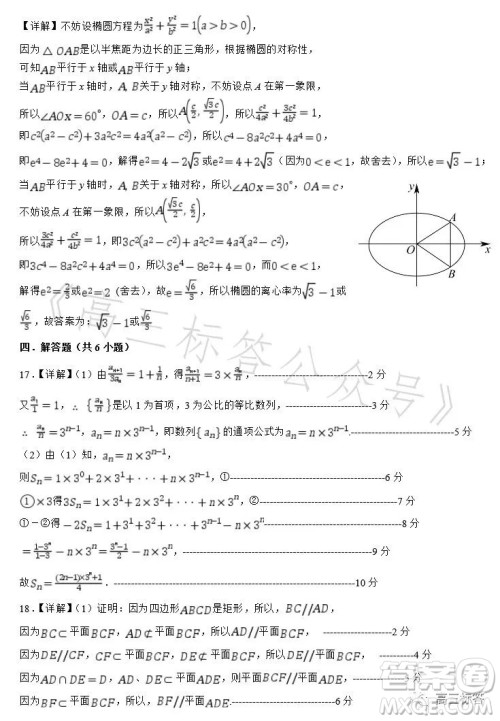 【详解】不妨设椭圆方程为 x²/a² + y²/b² = 1 (a>b>0)，
因为 △OAB是以半焦距为边长的正三角形，根据椭圆的对称性，
可知AB平行于 x 轴或AB平行于 y 轴；
当AB平行于 x 轴时，A、B关于 y 轴对称，不妨设点 A 在第一象限，
所以∠AOx=60°，OA=c，所以A(c/2, √3c/2)，所以 c²/4a² + 3c²/4b² = 1，
即c²(a²−c²)+3a²c²=4a²(a²−c²)，所以c⁴−8a²c²+4a⁴=0，
即e⁴−8e²+4=0，解得e²=4−2√3或e²=4+2√3（因为0<e<1，故舍去），所以e=√3−1；
当AB平行于 y 轴时，A、B关于 x 轴对称，所以∠AOx=30°，OA=c，
不妨设点 A 在第一象限，所以A(√3c/2, c/2)，
所以 3c²/4a² + c²/4b² = 1，即3c²(a²−c²)+a²c²=4a²(a²−c²)，
即3c⁴−8a²c²+4a⁴=0，所以3e⁴−8e²+4=0，而0<e<1，
解得e²=2/3或e²=2（舍去），故e=√6/3，所以椭圆的离心率为√3−1或
√6/3，故答案为：√3−1或√6/3
y
A
O
x
B
四．解答题（共 6 小题）
17.【详解】（1）由 aₙ₊₁/3aₙ = 1+1/n，得 aₙ₊₁/(n+1) = 3×aₙ/n，------2 分
又 a₁/1 = 1，∴ {aₙ/n}是以 1 为首项，3 为公比的等比数列，------3 分
∴ aₙ/n = 3ⁿ⁻¹，aₙ=n×3ⁿ⁻¹，即数列{aₙ}的通项公式为aₙ=n×3ⁿ⁻¹．------5 分
（2）由（1）知，aₙ=n×3ⁿ⁻¹，
则Sₙ=1×3⁰+2×3¹+···+n×3ⁿ⁻¹，①------6 分
①×3得3Sₙ=1×3¹+2×3²+···+n×3ⁿ，②------7 分
①−②得−2Sₙ=1+3¹+3²+···+3ⁿ⁻¹−n×3ⁿ------8 分
=(1−3ⁿ)/(1−3)−n×3ⁿ=(3ⁿ−1)/2−n×3ⁿ，------9 分
故Sₙ=((2n−1)×3ⁿ+1)/4．------10 分
18.【详解】（1）证明：因为四边形ABCD是矩形，所以，BC//AD，
因为BC⊂平面BCF，AD⊄平面BCF，所以AD//平面BCF，------2 分
因为DE//CF，CF⊂平面BCF，DE⊄平面BCF，所以DE//平面BCF，------4 分
因为AD∩DE=D，AD、DE⊂平面ADE，则平面BCF//平面ADE，------5 分
因为BF⊂平面BCF，所以，BF//平面ADE．------6 分
《高三标答公众号》
高三标答